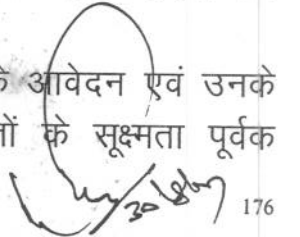 के आवेदन एवं उनके
तों के सूक्ष्मता पूर्वक
176